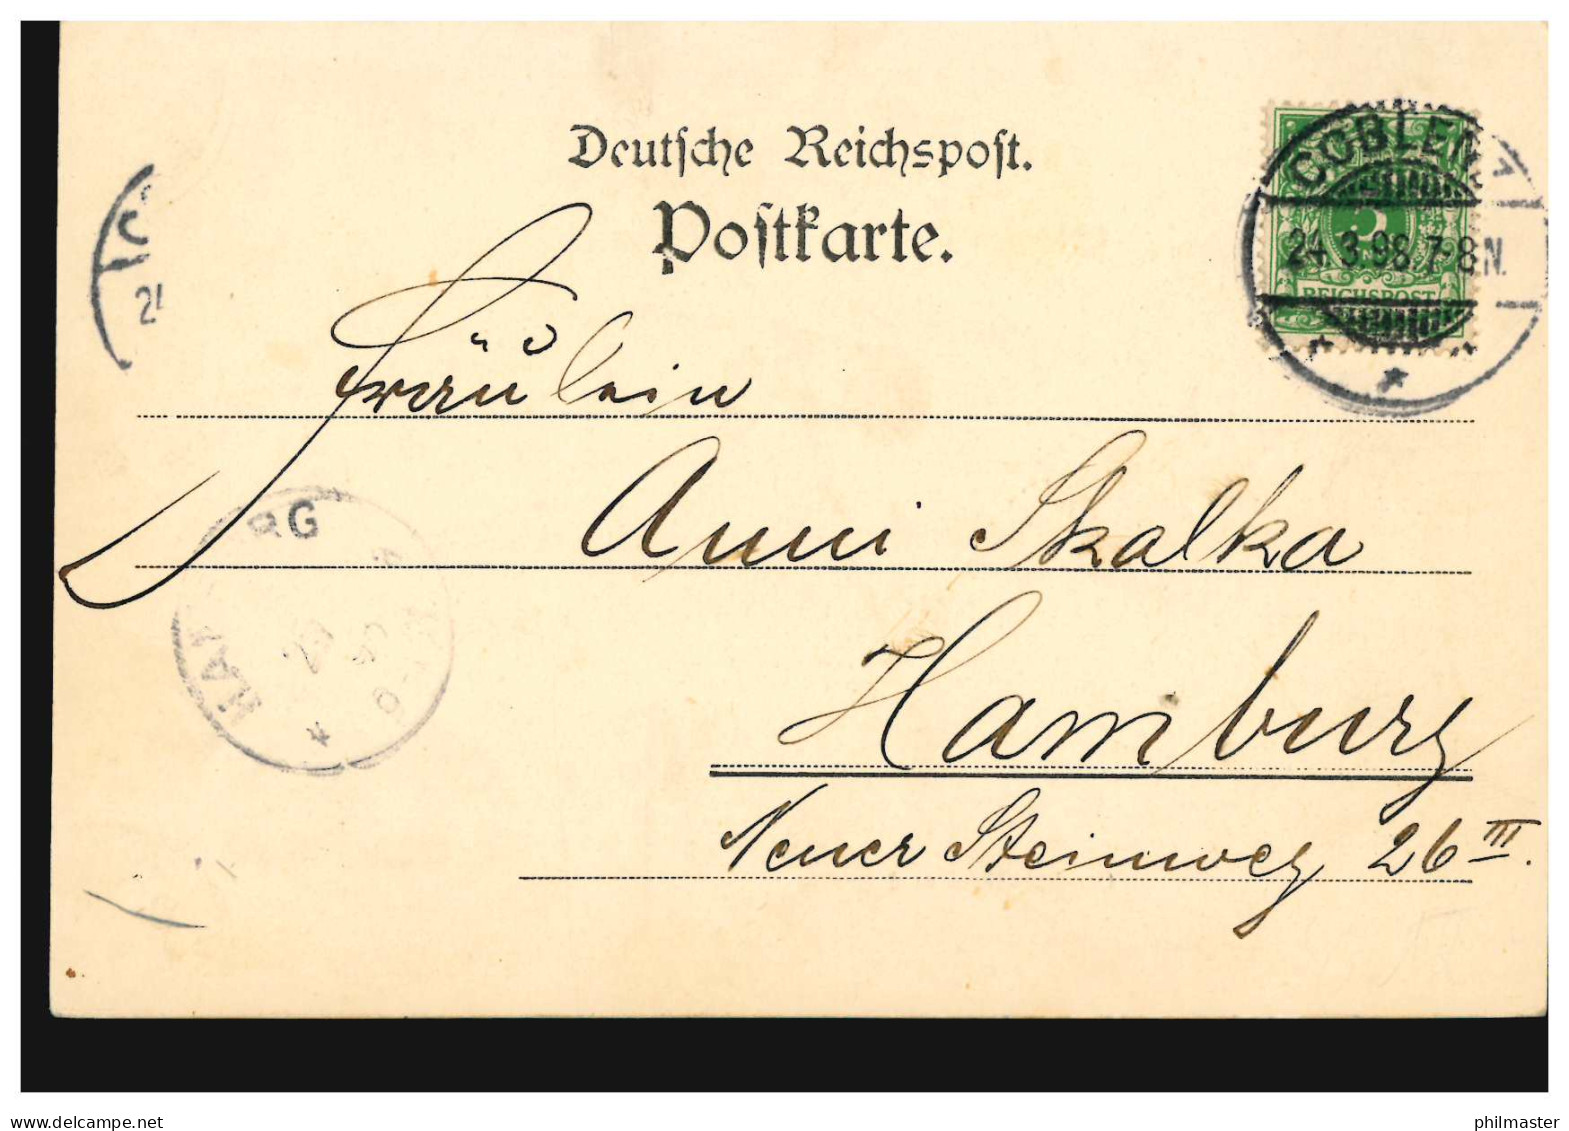 Deutsche Reichspost.
Postkarte.
COBLENZ
24.3.98.7-8N.
5
REICHSPOST
Fräulein
Anni Skalka
Hamburg
Neuer Steinweg 26 III.
www.delcampe.net
philmaster